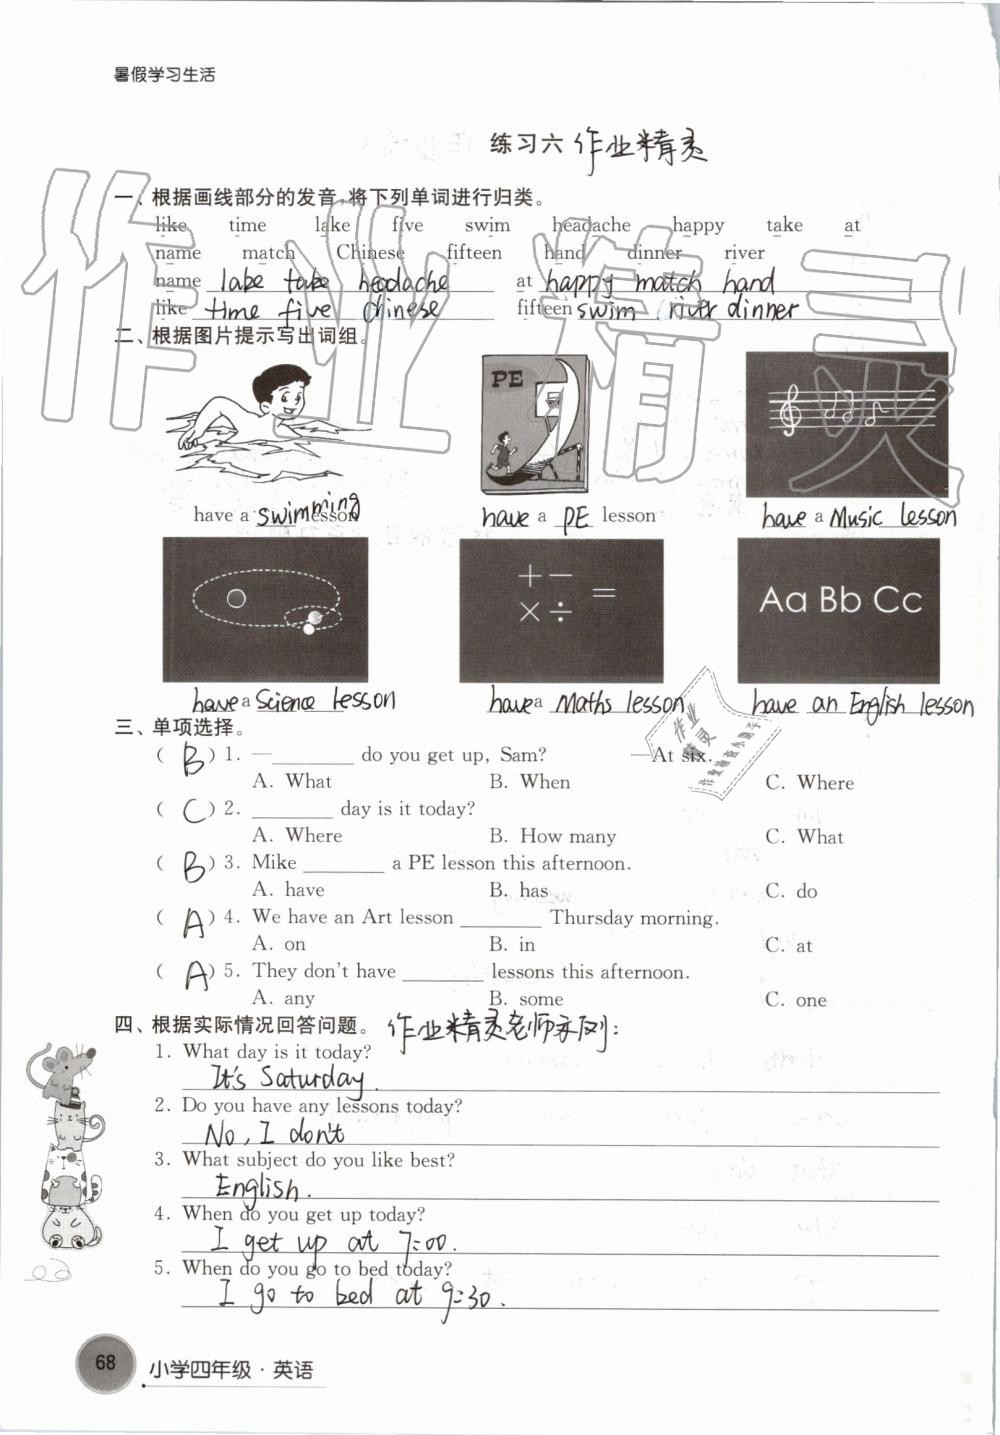 暑假学习生活
练习六 作业精灵
一、根据画线部分的发音,将下列单词进行归类。
like time lake five swim headache happy take at
name match Chinese fifteen hand dinner river
name lake take headache at happy match hand
like time five Chinese fifteen swim river dinner
二、根据图片提示写出词组。
PE
have a swimming lesson have a PE lesson have a Music lesson
+ − × ÷ =
Aa Bb Cc
have a Science lesson have a Maths lesson have an English lesson
三、单项选择。
( B ) 1. — ________ do you get up, Sam? —At six.
A. What B. When C. Where
( C ) 2. ________ day is it today?
A. Where B. How many C. What
( B ) 3. Mike ________ a PE lesson this afternoon.
A. have B. has C. do
( A ) 4. We have an Art lesson ________ Thursday morning.
A. on B. in C. at
( A ) 5. They don't have ________ lessons this afternoon.
A. any B. some C. one
四、根据实际情况回答问题。 作业精灵老师示例:
1. What day is it today?
It's Saturday.
2. Do you have any lessons today?
No, I don't
3. What subject do you like best?
English.
4. When do you get up today?
I get up at 7:00.
5. When do you go to bed today?
I go to bed at 9:30.
68 小学四年级·英语
作业精灵
作业
精灵